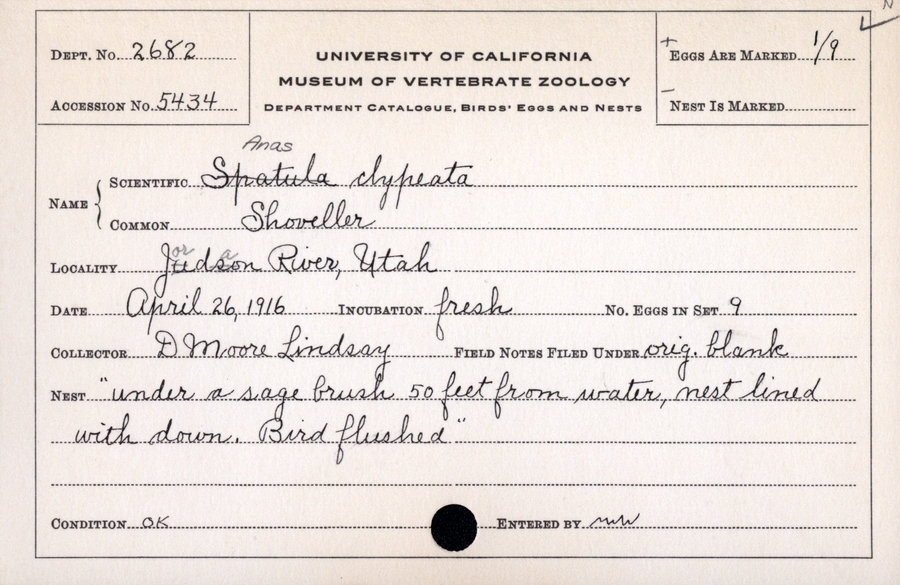 N
DEPT. No. 2682
UNIVERSITY OF CALIFORNIA
+ EGGS ARE MARKED 1/9
MUSEUM OF VERTEBRATE ZOOLOGY
ACCESSION No. 5434
DEPARTMENT CATALOGUE, BIRDS' EGGS AND NESTS
- NEST IS MARKED
Anas
NAME
SCIENTIFIC Spatula clypeata
COMMON Shoveller
or a
LOCALITY Judson River, Utah
DATE April 26, 1916 INCUBATION fresh NO. EGGS IN SET 9
COLLECTOR D Moore Lindsay FIELD NOTES FILED UNDER orig. blank
NEST "under a sage brush 50 feet from water, nest lined
with down. Bird flushed"
CONDITION OK ENTERED BY